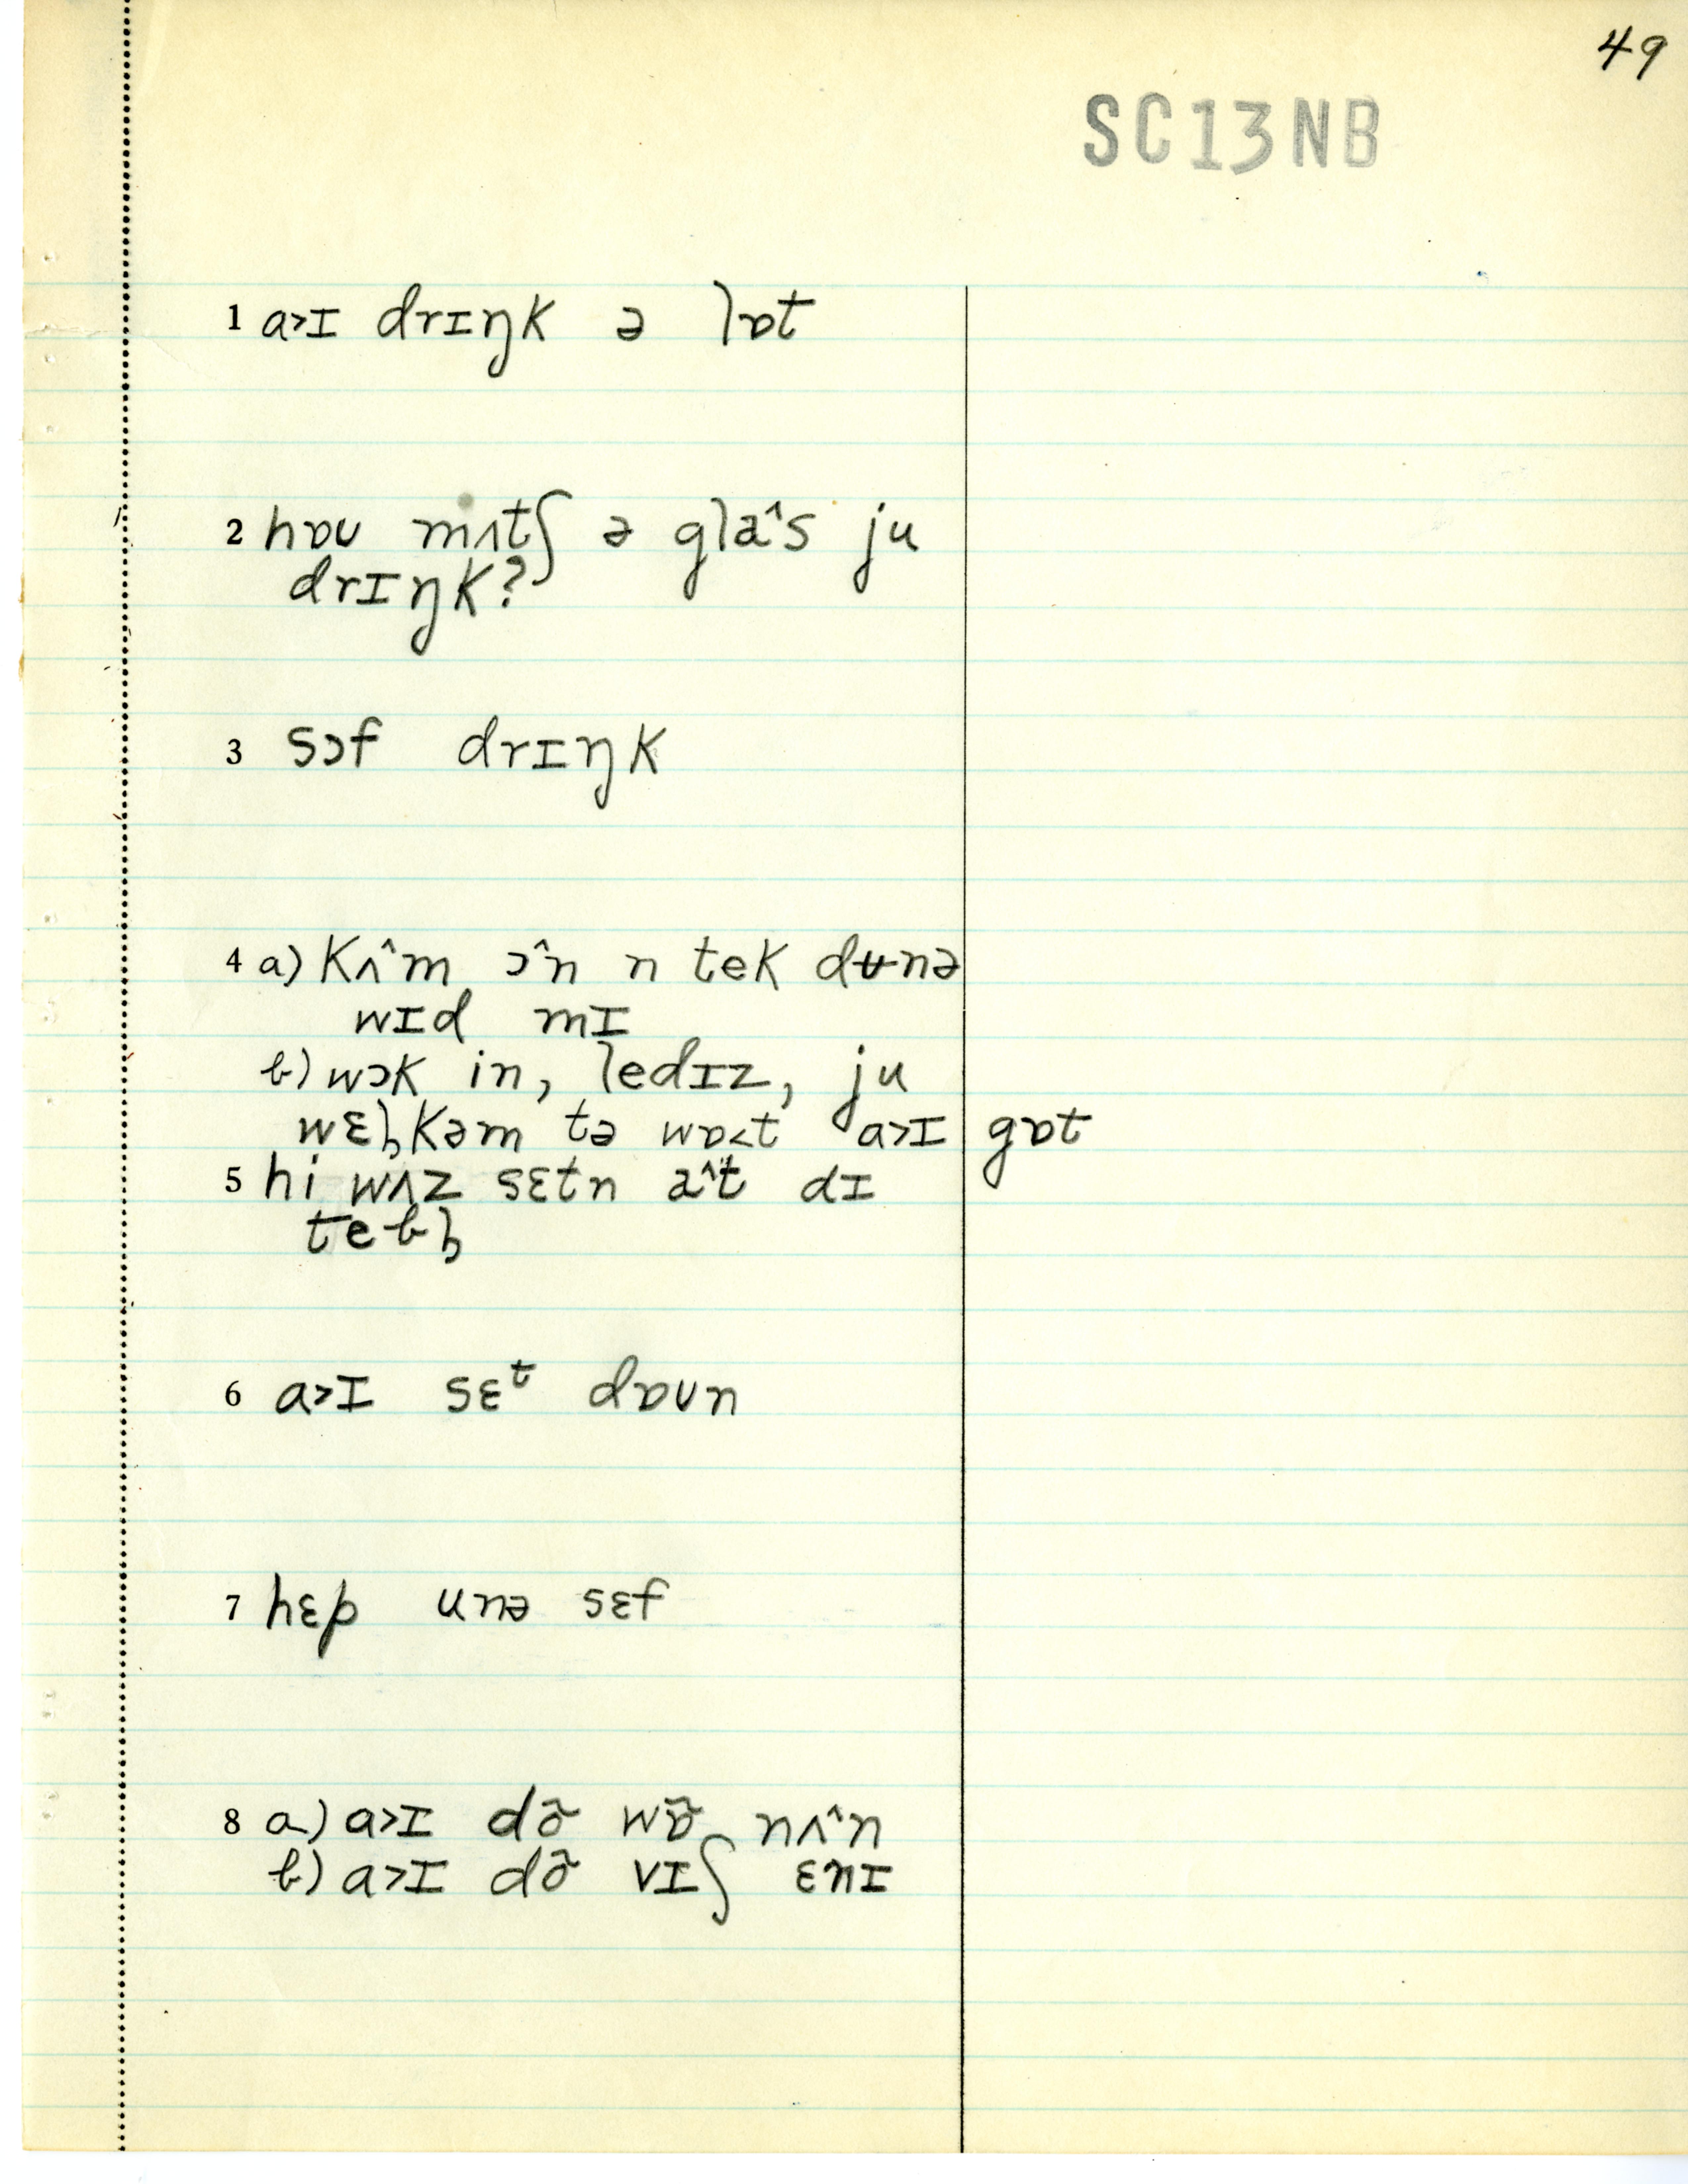 49
SC13NB
1 a>ɪ drɪŋk ə lɒt
2 hɒʊ mʌtʃ ə gla^s ju
drɪŋk?
3 sɔf drɪŋk
4 a) kʌ^m ɔ^n n tek dʉnə
wɪd mɪ
b) wɔk in, ledɪz, ju
wɛl̩kəm tə wɒ<t a>ɪ gɒt
5 hi wʌz sɛtn a^t dɪ
tebl̩
6 a>ɪ sɛᵗ dɒʊn
7 hɛp unə sɛf
8 a) a>ɪ dõ wɒ̃ nʌ^n
b) a>ɪ dõ vɪʃ ɛnɪ